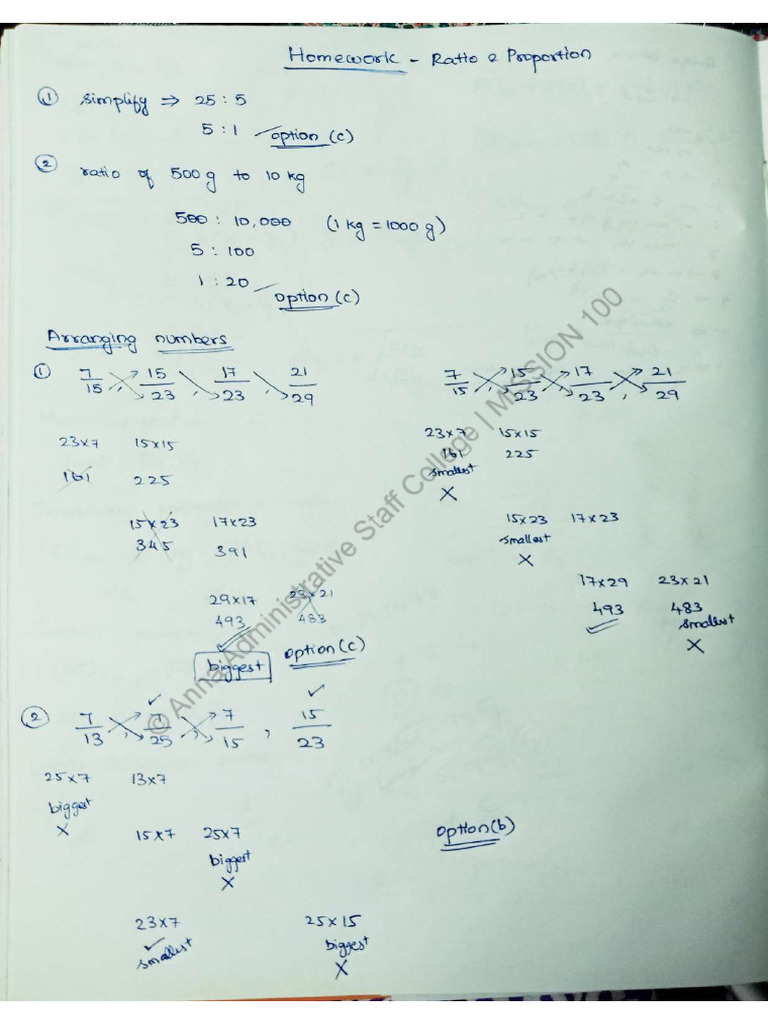 Homework - Ratio & Proportion
① simplify ⇒ 25 : 5
5 : 1 option (c)
② ratio of 500 g to 10 kg
500 : 10,000 (1 kg = 1000 g)
5 : 100
1 : 20
option (c)
Arranging numbers
① 7/15 , 15/23 , 17/23 , 21/29
23×7 15×15
161 225
15×23 17×23
345 391
29×17 23×21
493 483
biggest option (c)
7/15 , 15/23 , 17/23 , 21/29
23×7 15×15
161 225
smallest
X
15×23 17×23
smallest
X
17×29 23×21
493 483
smallest
X
② 7/13 , 7/25 , 7/15 , 15/23
25×7 13×7
biggest
X
15×7 25×7
biggest
X
option (b)
23×7 25×15
smallest biggest
X
© Anna Administrative Staff College | MISSION 100